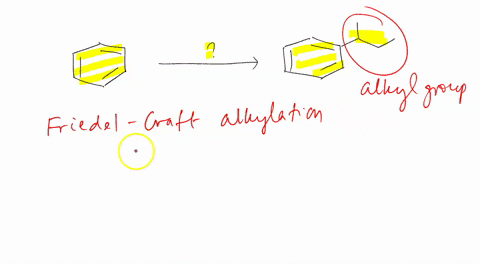 ?
alkyl group
Friedel-Craft alkylation